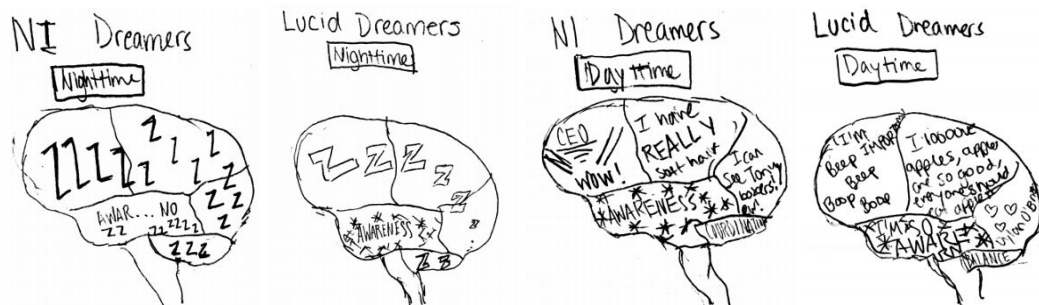 NI Dreamers
Nighttime
ZZZZ
Z Z Z Z Z Z Z
AWAR... NO
ZZ ZZZZZ
Z Z Z Z Z
ZZZ
Lucid Dreamers
Nighttime
Z Z Z Z Z Z
AWARENESS
Z Z
NI Dreamers
Daytime
CEO
WOW!
I have
REALLY
soft hair
I can
see Tom's
AWARENESS
COORDINATION
Lucid Dreamers
Daytime
I'm
IMPORTANT
Beep
Beep
Boop Boop
I looove
apples, apples
are so good,
everyone should
eat apples
I'M SO
AWARE
BALANCE